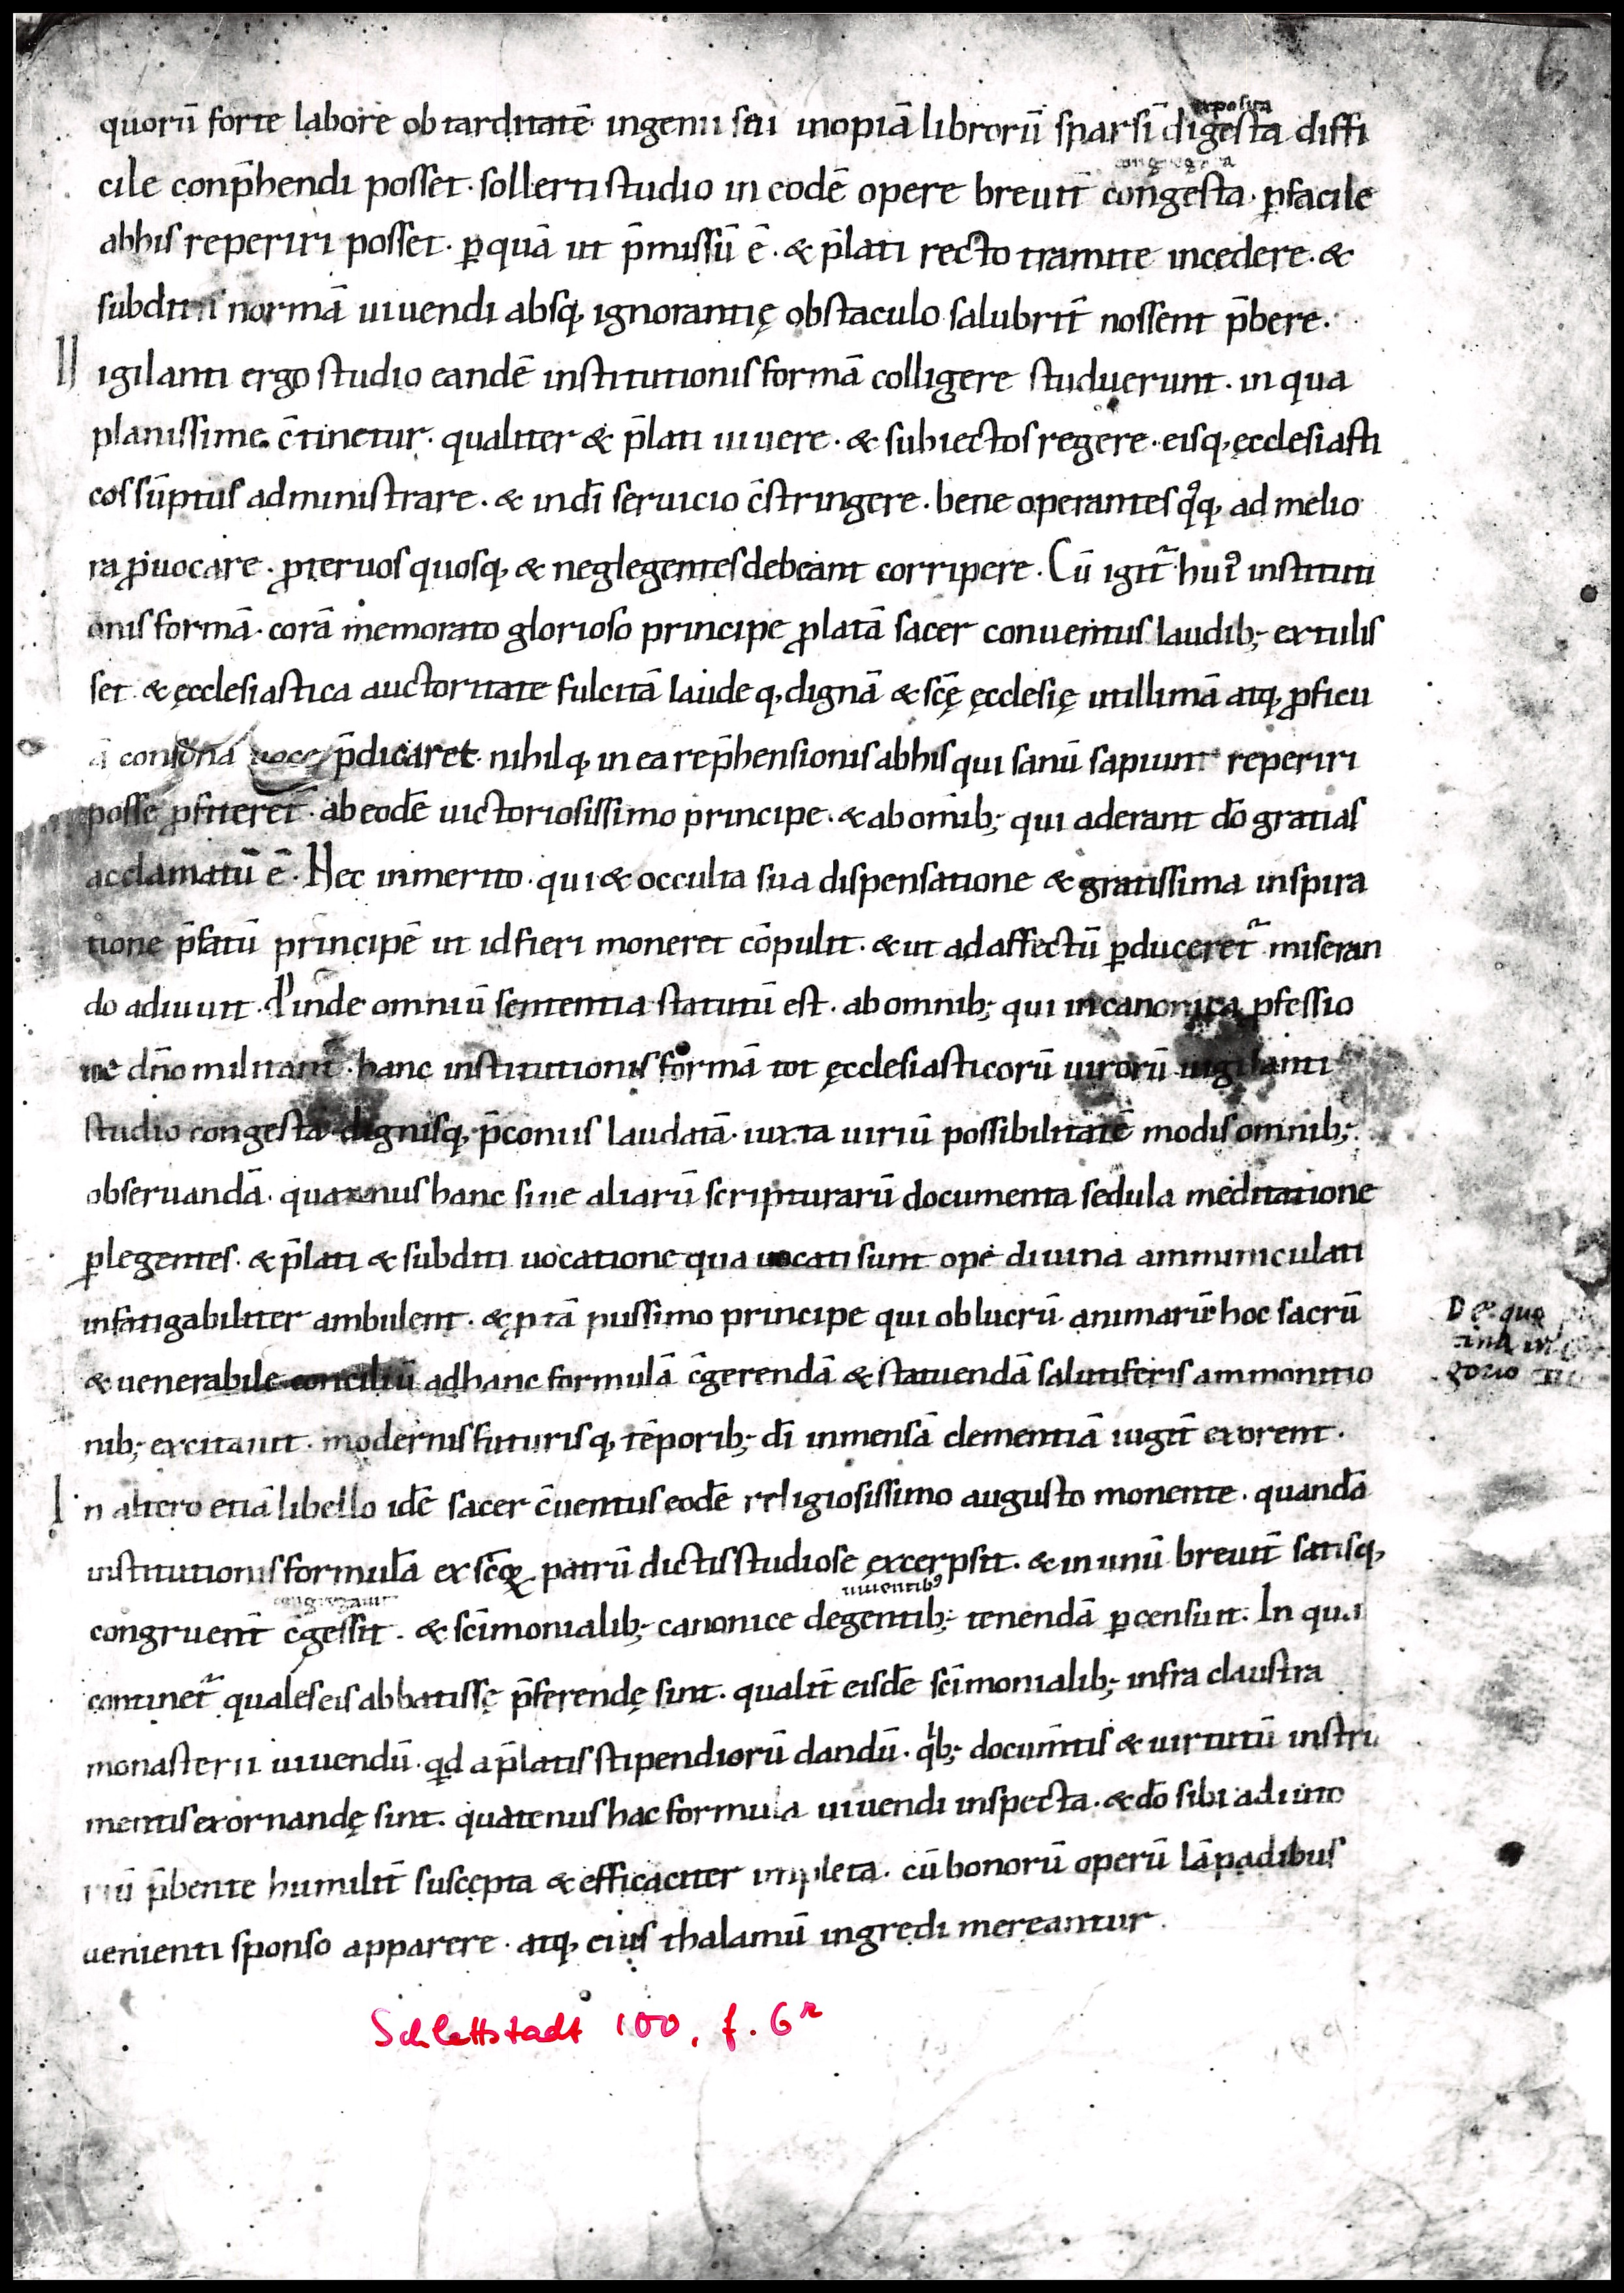 exposita
quorū forte labore ob tarditatē ingenii seu inopiā librorū sparsī digesta diffi
congregata
cile conp̄hendi posset · sollerti studio in eodē opere breuit̄ congesta · ꝑfacile
abhis reperiri posset · ꝑ quā ut p̄missū ē · & p̄lati recto tramite incedere · &
subditi normā uiuendi absq; ignorantię obstaculo salubrit̄ nossent p̄bere ·
Uigilanti ergo studio eandē institutionis formā colligere studuerunt · in qua
planissime c̄tinetur · qualiter & p̄lati uiuere · & subiectos regere · eisq; ęcclesiasti
cos sūptus administrare · & in dī seruicio c̄stringere · bene operantes qͦq; ad melio
ra ꝓuocare · ꝓteruos quosq; & neglegentes debeant corripere · Cū igit᷑ huiꝰ instituti
onis formā · corā memorato glorioso principe ꝓlatā sacer conuentus laudib; extulis
set & ęcclesiastica auctoritate fulcitā laude q; dignā & scę̄ ęcclesię utillimā atq; ꝓficu
ā consona uoce p̄dicaret · nihilq; in ea rep̄hensionis abhis qui sanū sapiunt reperiri
posse ꝓfiteret᷑ · ab eodē uictoriosissimo principe · & ab omīb; qui aderant dō gratias
acclamatū ē · Nec inmerito · qui & occulta sua dispensatione & gratissima inspira
tione p̄fatū principē ut id fieri moneret cōpulit · & ut ad affectū ꝑduceret᷑ miseran
do adiuuit · Proinde omniū sententia statutū est · ab omnib; qui in canonica ꝓfessio
ne dn̄o militant · hanc institutionis formā tot ęcclesiasticorū uirorū uigilanti
studio congestā dignisq; p̄coniis laudatā · iuxta uiriū possibilitatē modis omnib;
obseruandā · quatenus hanc siue aliarū scripturarū documenta sedula meditatione
ꝑlegentes · & p̄lati & subditi uocatione qua uocati sunt ope diuina amminiculati
infatigabiliter ambulent · & ꝓ tā piissimo principe qui ob lucrū animarū hoc sacrū
& uenerabile conciliū ad hanc formulā c̄gerendā & statuendā salutiferis ammonitio
nib; excitauit · modernis futurisq; tēporib; dī inmensā clementiā iugit̄ exorent ·
In altero etiā libello idē sacer c̄uentus eodē religiosissimo augusto monente · quandā
institutionis formulā ex scōꝝ patrū dictis studiose excerpsit · & in unū breuit̄ satisq;
congregauit uiuentibꝰ
congruent̄ c̄gessit · & scīmonialib; canonice degentib; tenendā ꝑcensuit · In qua
continet᷑ quales eis abbatissę p̄ferendę sint · qualit̄ eisdē scīmonialib; infra claustra
monasterii uiuendū · qd̄ a p̄latis stipendiorū dandū · qⁱb; documn̄tis & uirtutū instru
mentis exornandę sint · quatenus hac formula uiuendi inspecta · & dō sibi adiuto
riū p̄bente humilit̄ suscepta & efficaciter impleta · cū bonorū operū lāpadibus
uenienti sponso apparere · atq; eius thalamū ingredi mereantur ·
Schlettstadt 100, f. 6ʳ